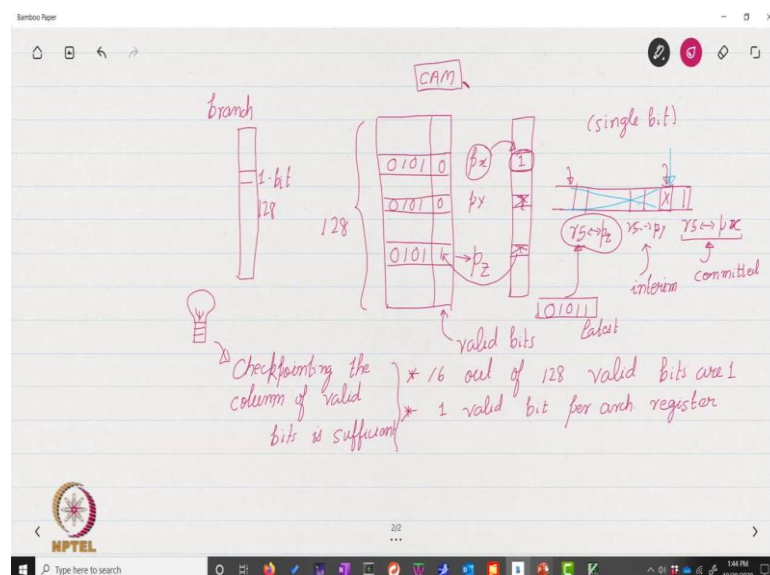 Bamboo Paper
CAM
branch
(single bit)
1-bit
128
128
0101 0
px
1
0101 0
py
0101 1
pz
X
r5↔pz
r5↔px
interim
committed
01011
latest
valid bits
Checkpointing the
column of valid
bits is sufficient
* 16 out of 128 valid bits are 1
* 1 valid bit per arch register
NPTEL
2/2
Type here to search
1:44 PM